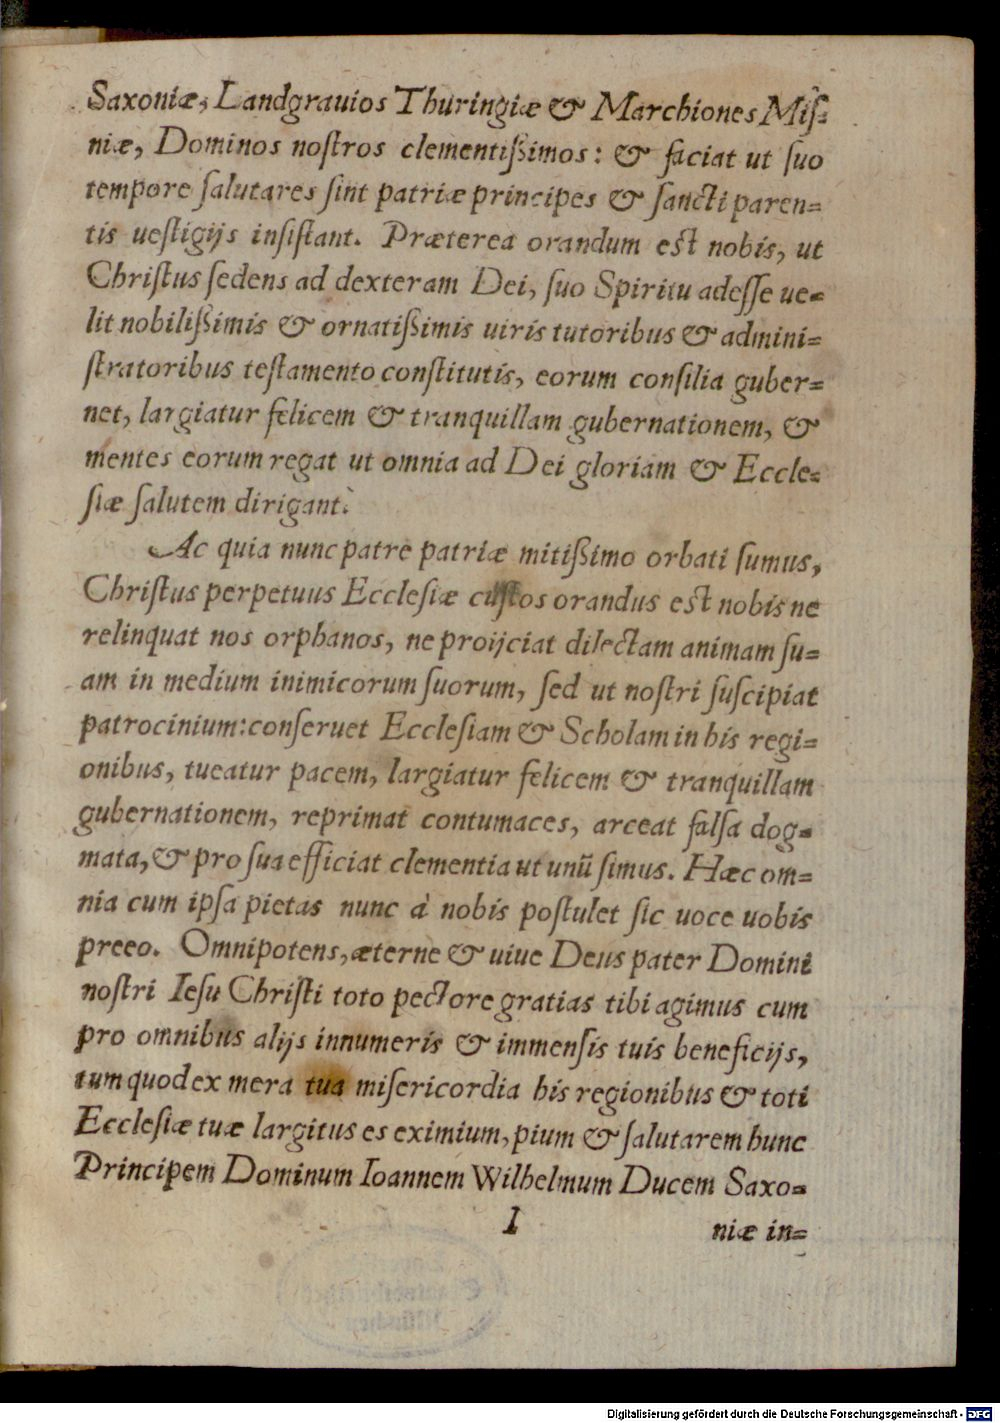 Saxoniæ, Landgrauios Thuringiæ & Marchiones Miſ-
niæ, Dominos noſtros clementißimos: & faciat ut ſuo
tempore ſalutares ſint patriæ principes & ſancti paren-
tis ueſtigijs inſiſtant. Præterea orandum eſt nobis, ut
Chriſtus ſedens ad dexteram Dei, ſuo Spiritu adeſſe ue-
lit nobilißimis & ornatißimis uiris tutoribus & admini-
ſtratoribus teſtamento conſtitutis, eorum conſilia guber-
net, largiatur felicem & tranquillam gubernationem, &
mentes eorum regat ut omnia ad Dei gloriam & Eccle-
ſiæ ſalutem dirigant.
Ac quia nunc patre patriæ mitißimo orbati ſumus,
Chriſtus perpetuus Eccleſiæ cuſtos orandus eſt nobis ne
relinquat nos orphanos, ne proijciat dilectam animam ſu-
am in medium inimicorum ſuorum, ſed ut noſtri ſuſcipiat
patrocinium: conſeruet Eccleſiam & Scholam in his regi-
onibus, tueatur pacem, largiatur felicem & tranquillam
gubernationem, reprimat contumaces, arceat falſa dog-
mata, & pro ſua efficiat clementia ut unū ſimus. Hæc om-
nia cum ipſa pietas nunc à nobis poſtulet ſic uoce uobis
preeo. Omnipotens, æterne & uiue Deus pater Domini
noſtri Ieſu Chriſti toto pectore gratias tibi agimus cum
pro omnibus alijs innumeris & immenſis tuis beneficijs,
tum quod ex mera tua miſericordia his regionibus & toti
Eccleſiæ tuæ largitus es eximium, pium & ſalutarem hunc
Principem Dominum Ioannem Wilhelmum Ducem Saxo-
I niæ in-
Digitalisierung gefördert durch die Deutsche Forschungsgemeinschaft - DFG